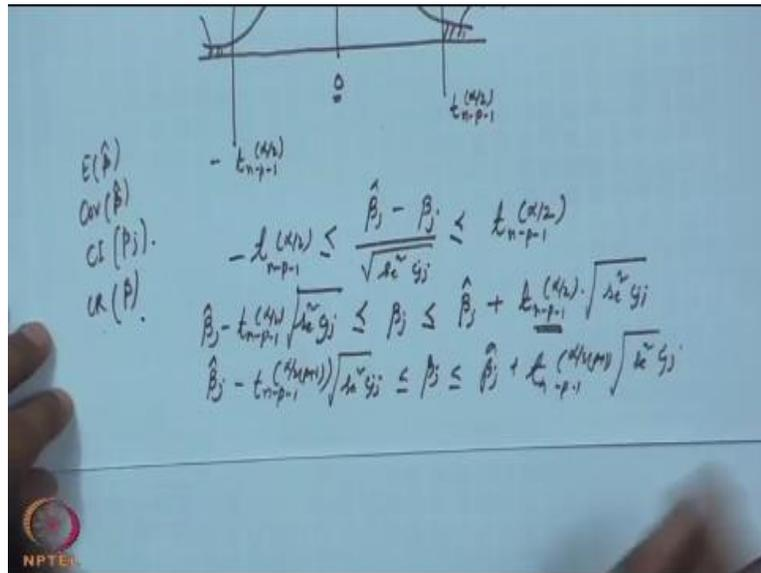 0
t_{n-p-1}^{(α/2)}
- t_{n-p-1}^{(α/2)}
E(β̂)
Cov(β̂)
CI(βj).
CR(β).
-t_{n-p-1}^{(α/2)} ≤ (β̂j - βj) / √(se² cjj) ≤ t_{n-p-1}^{(α/2)}
β̂j - t_{n-p-1}^{(α/2)} √(se² cjj) ≤ βj ≤ β̂j + t_{n-p-1}^{(α/2)} · √(se² cjj)
β̂j - t_{n-p-1}^{(α/2(p+1))} √(se² cjj) ≤ βj ≤ β̂j + t_{n-p-1}^{(α/2(p+1))} √(se² cjj)
NPTEL